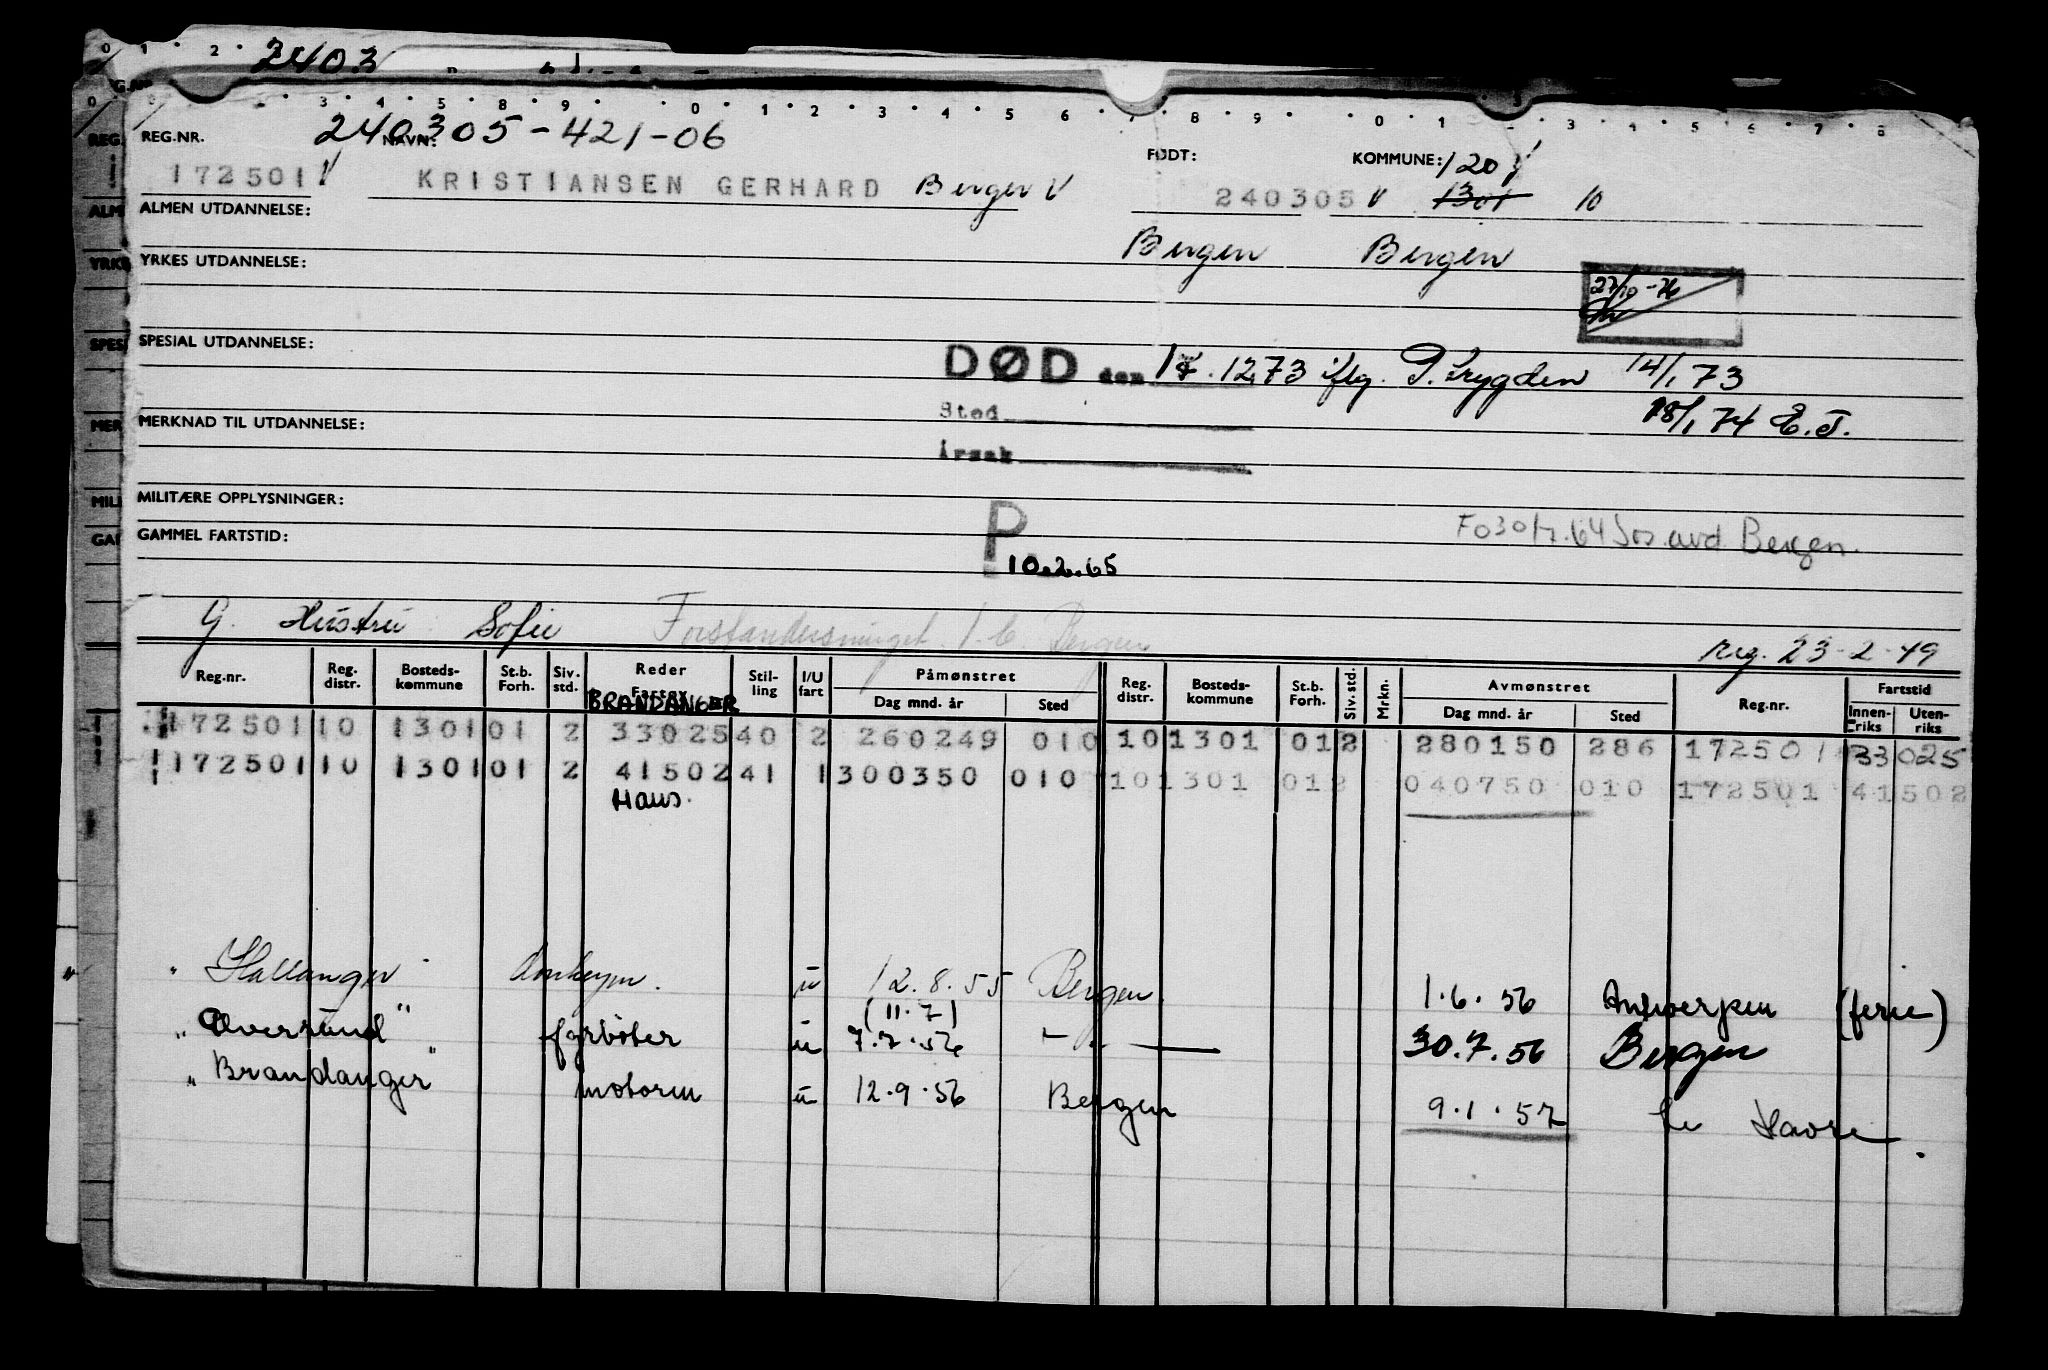 0 1 2
2403
3 4 5 8 9 0 1 2 3 4 5 6 7 8 9 0 1 2 3 4 5 6 7 8
REG.NR. NAVN: 240305-421-06 FØDT: KOMMUNE: 1201
172501 V KRISTIANSEN GERHARD Bergen V 240305 V 1301 10
ALMEN UTDANNELSE:
Bergen Bergen
YRKES UTDANNELSE:
27/10-76
SPESIAL UTDANNELSE:
DØD den 14.12.73 iflg. P.trygden 14/1 73
Sted 18/1 74 E.J.
MERKNAD TIL UTDANNELSE:
Årsak
MILITÆRE OPPLYSNINGER:
P
GAMMEL FARTSTID:
10.2.65
G. Hustru Sofie
Reg. 23-2-49
Reg.nr. Reg. distr. Bosteds- kommune St.b. Forh. Siv. std. Reder Fartøy Stil- ling I/U fart Påmønstret Dag mnd. år Sted Reg. distr. Bosteds- kommune St.b. Forh. Siv. std. Mrkn. Avmønstret Dag mnd. år Sted Reg.nr. Fartstid Innen- riks Uten- riks
BRANDANGER
172501 10 1301 01 2 33025 40 2 260249 010 10 1301 01 2 280150 286 172501 33025
172501 10 1301 01 2 41502 41 1 300350 010 10 1301 01 2 040750 010 172501 41502
Haus.
" Hallanger " donkeym. u 12.8.55 Bergen. 1.6.56 Antwerpen (ferie)
(11.7)
" Oversund " fyrbøter u 7.7.56 — " — 30.7.56 Bergen
" Brandanger " motorm u 12.9.56 Bergen 9.1.57 Le Havre.